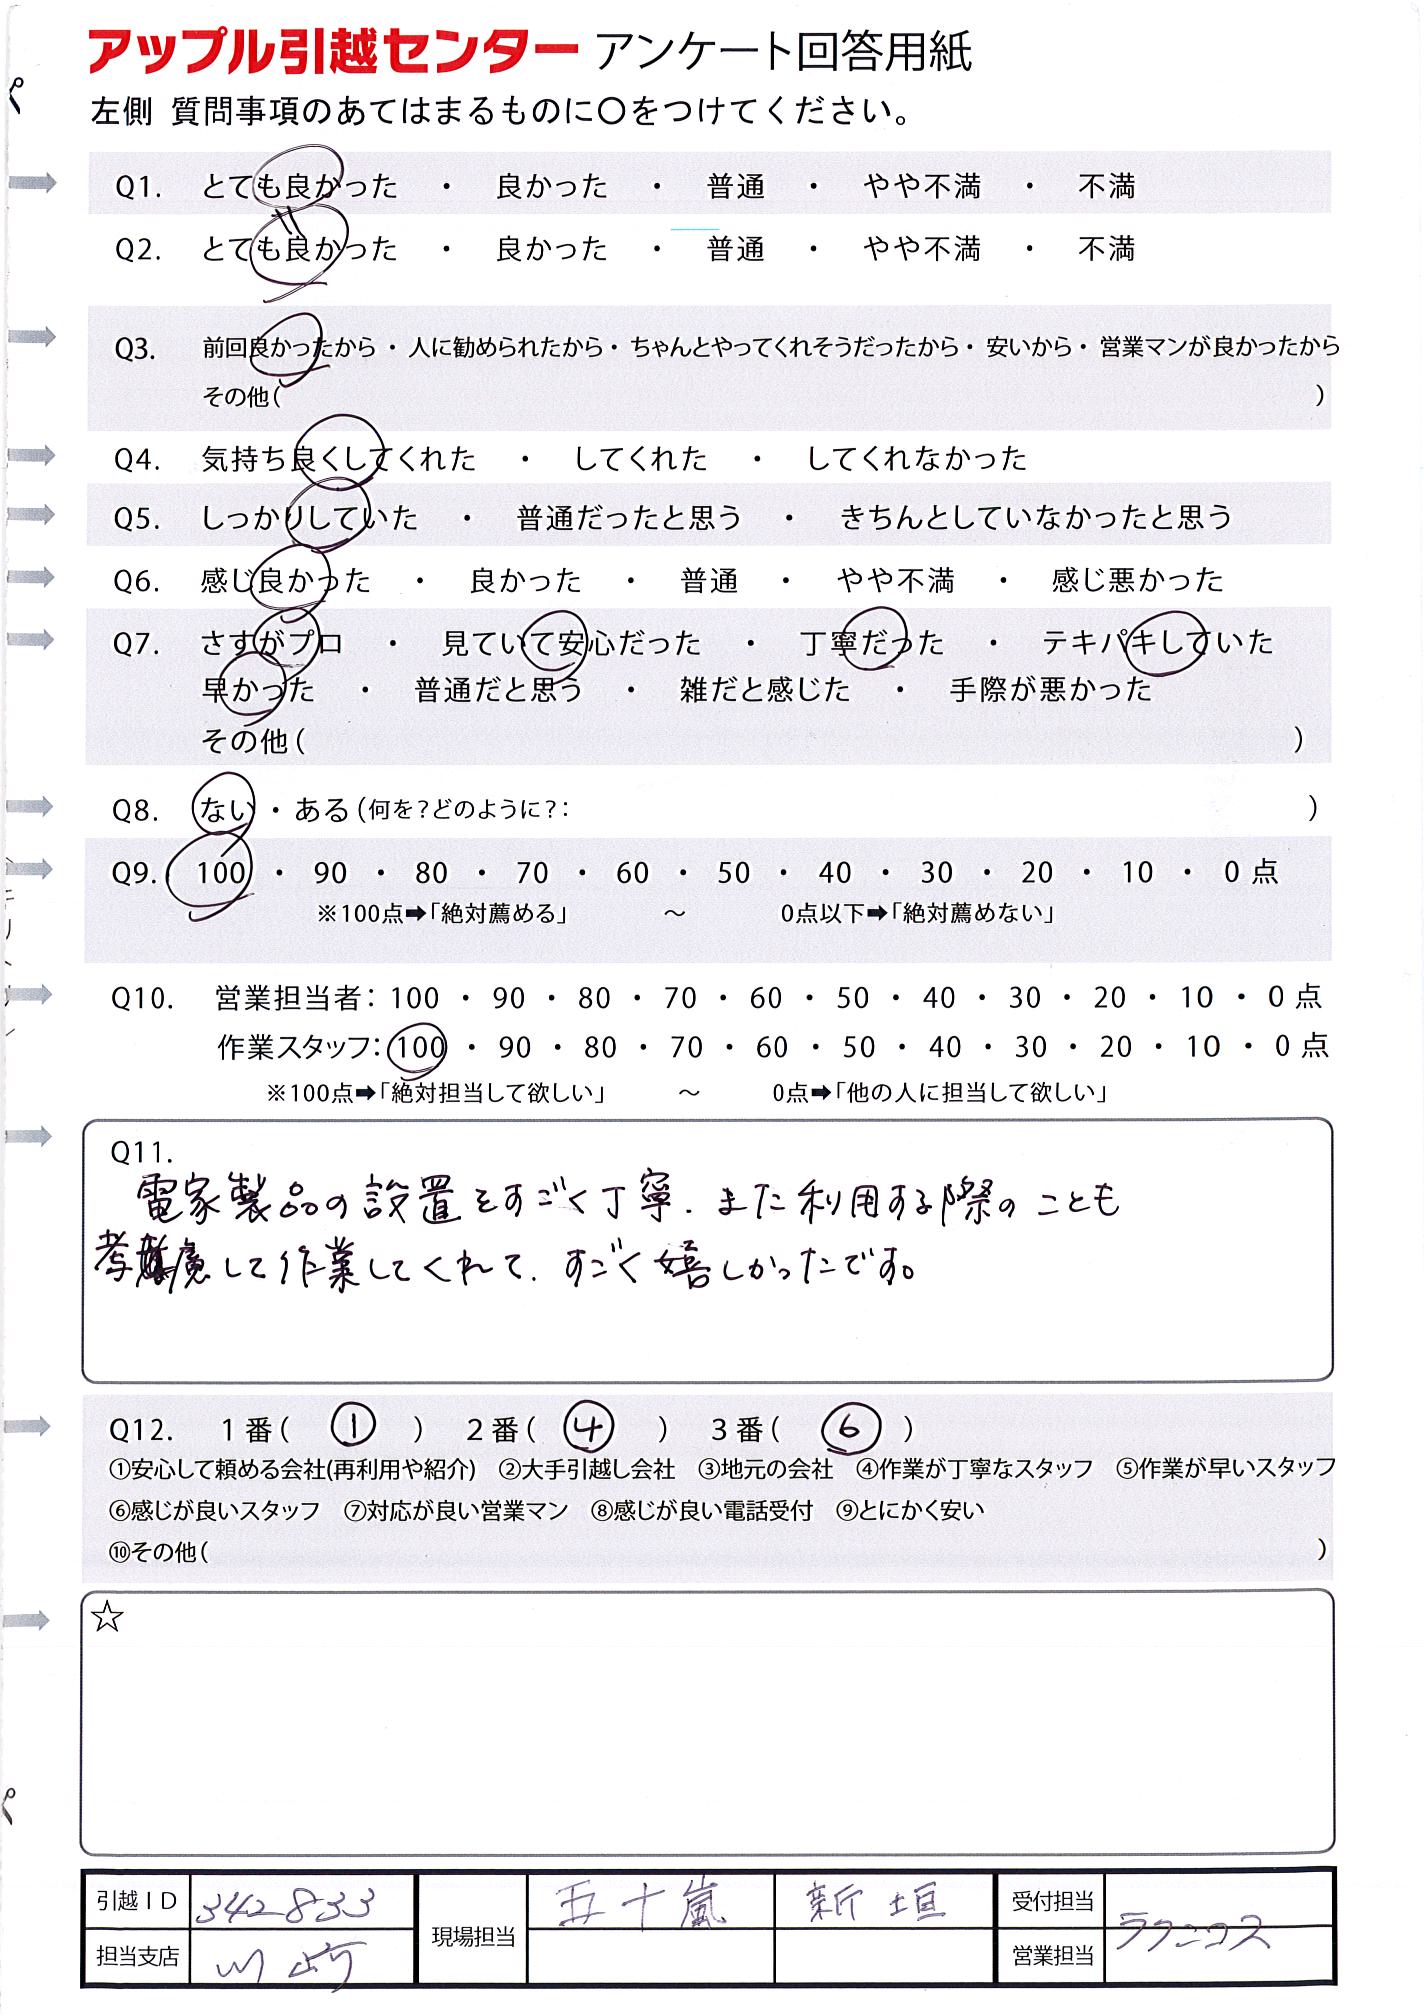 アップル引越センター アンケート回答用紙
左側 質問事項のあてはまるものに〇をつけてください。
Q1. とても良かった ・ 良かった ・ 普通 ・ やや不満 ・ 不満
Q2. とても良かった ・ 良かった ・ 普通 ・ やや不満 ・ 不満
Q3. 前回良かったから・人に勧められたから・ちゃんとやってくれそうだったから・安いから・営業マンが良かったから
その他( )
Q4. 気持ち良くしてくれた ・ してくれた ・ してくれなかった
Q5. しっかりしていた ・ 普通だったと思う ・ きちんとしていなかったと思う
Q6. 感じ良かった ・ 良かった ・ 普通 ・ やや不満 ・ 感じ悪かった
Q7. さすがプロ ・ 見ていて安心だった ・ 丁寧だった ・ テキパキしていた
早かった ・ 普通だと思う ・ 雑だと感じた ・ 手際が悪かった
その他( )
Q8. ない・ある(何を?どのように?: )
Q9. 100 ・ 90 ・ 80 ・ 70 ・ 60 ・ 50 ・ 40 ・ 30 ・ 20 ・ 10 ・ 0点
※100点➡「絶対薦める」 〜 0点以下➡「絶対薦めない」
Q10. 営業担当者: 100 ・ 90 ・ 80 ・ 70 ・ 60 ・ 50 ・ 40 ・ 30 ・ 20 ・ 10 ・ 0点
作業スタッフ: 100 ・ 90 ・ 80 ・ 70 ・ 60 ・ 50 ・ 40 ・ 30 ・ 20 ・ 10 ・ 0点
※100点➡「絶対担当して欲しい」 〜 0点➡「他の人に担当して欲しい」
Q11.
電家製品の設置をすごく丁寧、また利用する際のことも
考慮して作業してくれて、すごく嬉しかったです。
Q12. 1番( ① ) 2番( ④ ) 3番( ⑥ )
①安心して頼める会社(再利用や紹介) ②大手引越し会社 ③地元の会社 ④作業が丁寧なスタッフ ⑤作業が早いスタッフ
⑥感じが良いスタッフ ⑦対応が良い営業マン ⑧感じが良い電話受付 ⑨とにかく安い
⑩その他( )
☆
引越ID 342833 現場担当 五十嵐 新垣 受付担当
担当支店 川崎 営業担当